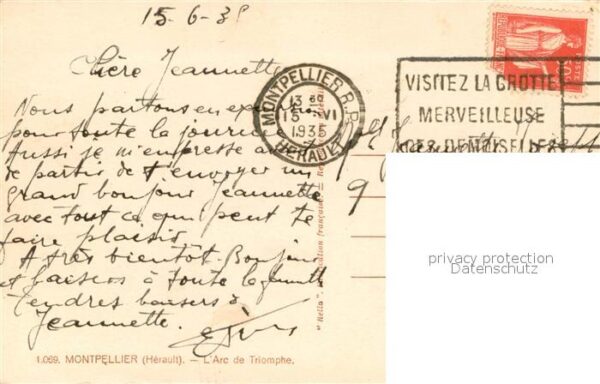 15-6-35
Chère Jeannette
Nous partons en
pour toute la journée
Aussi je m'empresse avant
de partir de t'envoyer un
grand bonjour Jeannette
avec tout ce qui peut te
faire plaisir.
A très bientôt. Bonjour
et baisers à toute la famille
Tendres baisers à
Jeannette.
1.069. MONTPELLIER (Hérault). — L'Arc de Triomphe.
MONTPELLIER R.P.
13 30
15 VI
1935
HÉRAULT
VISITEZ LA GROTTE
MERVEILLEUSE
DES DEMOISELLES
POSTES
privacy protection
Datenschutz